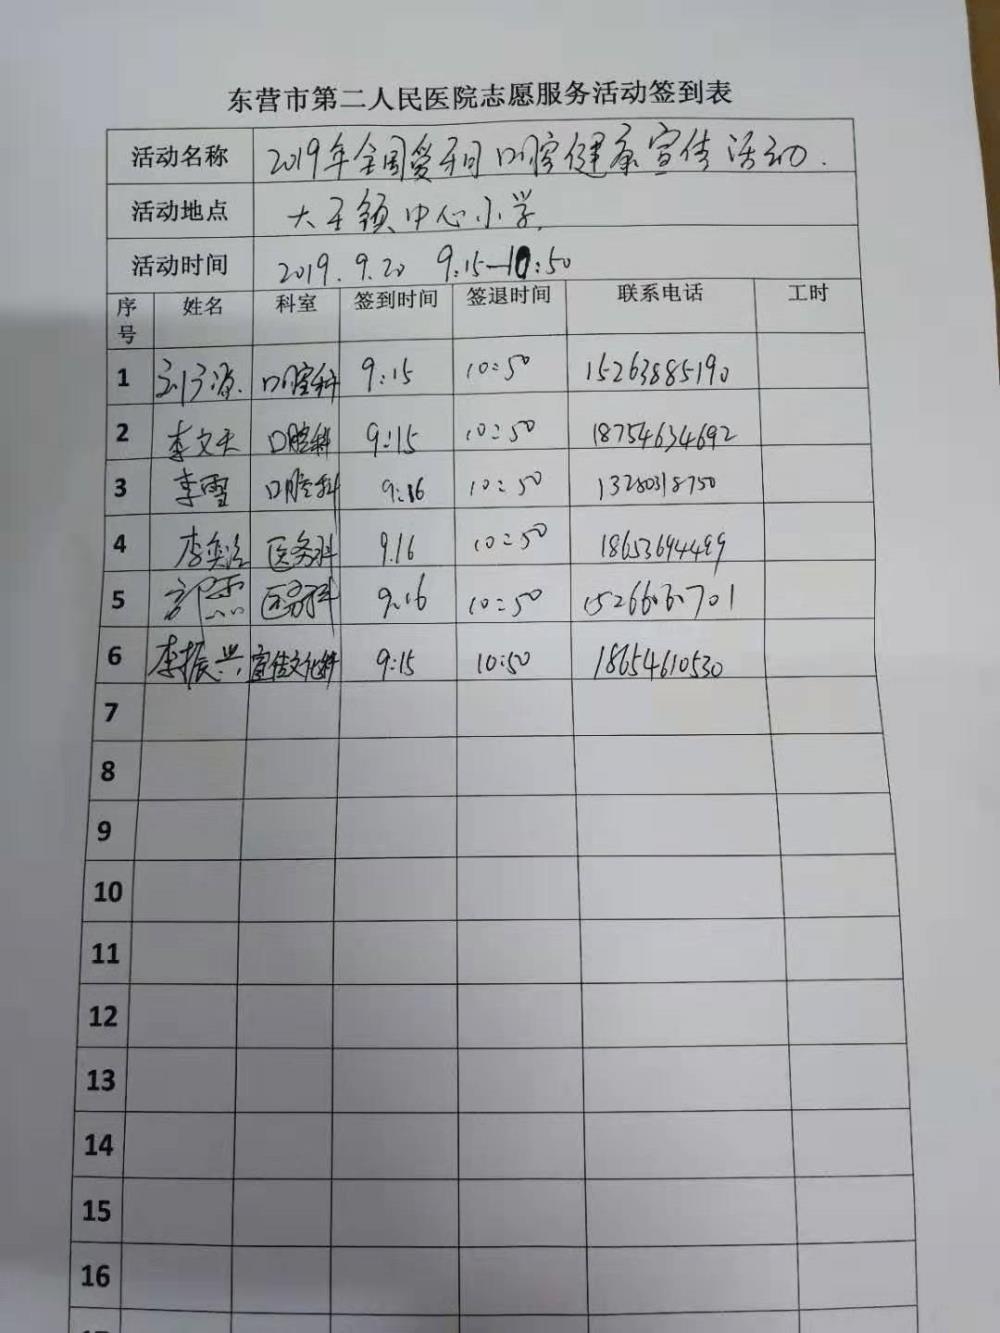 东营市第二人民医院志愿服务活动签到表
活动名称 2019年全国爱牙日口腔健康宣传活动.
活动地点 大王镇中心小学.
活动时间 2019.9.20 9:15—10:50
序号 姓名 科室 签到时间 签退时间 联系电话 工时
1 口腔科 9:15 10:50 15263885190
2 李文天 口腔科 9:15 10:50 18754634692
3 李雪 口腔科 9:16 10:50 13280318750
4 医务科 9.16 10:50 18653694499
5 医务科 9:16 10:50
6 李振兴 宣传文化科 9:15 10:50 18654610530
7
8
9
10
11
12
13
14
15
16